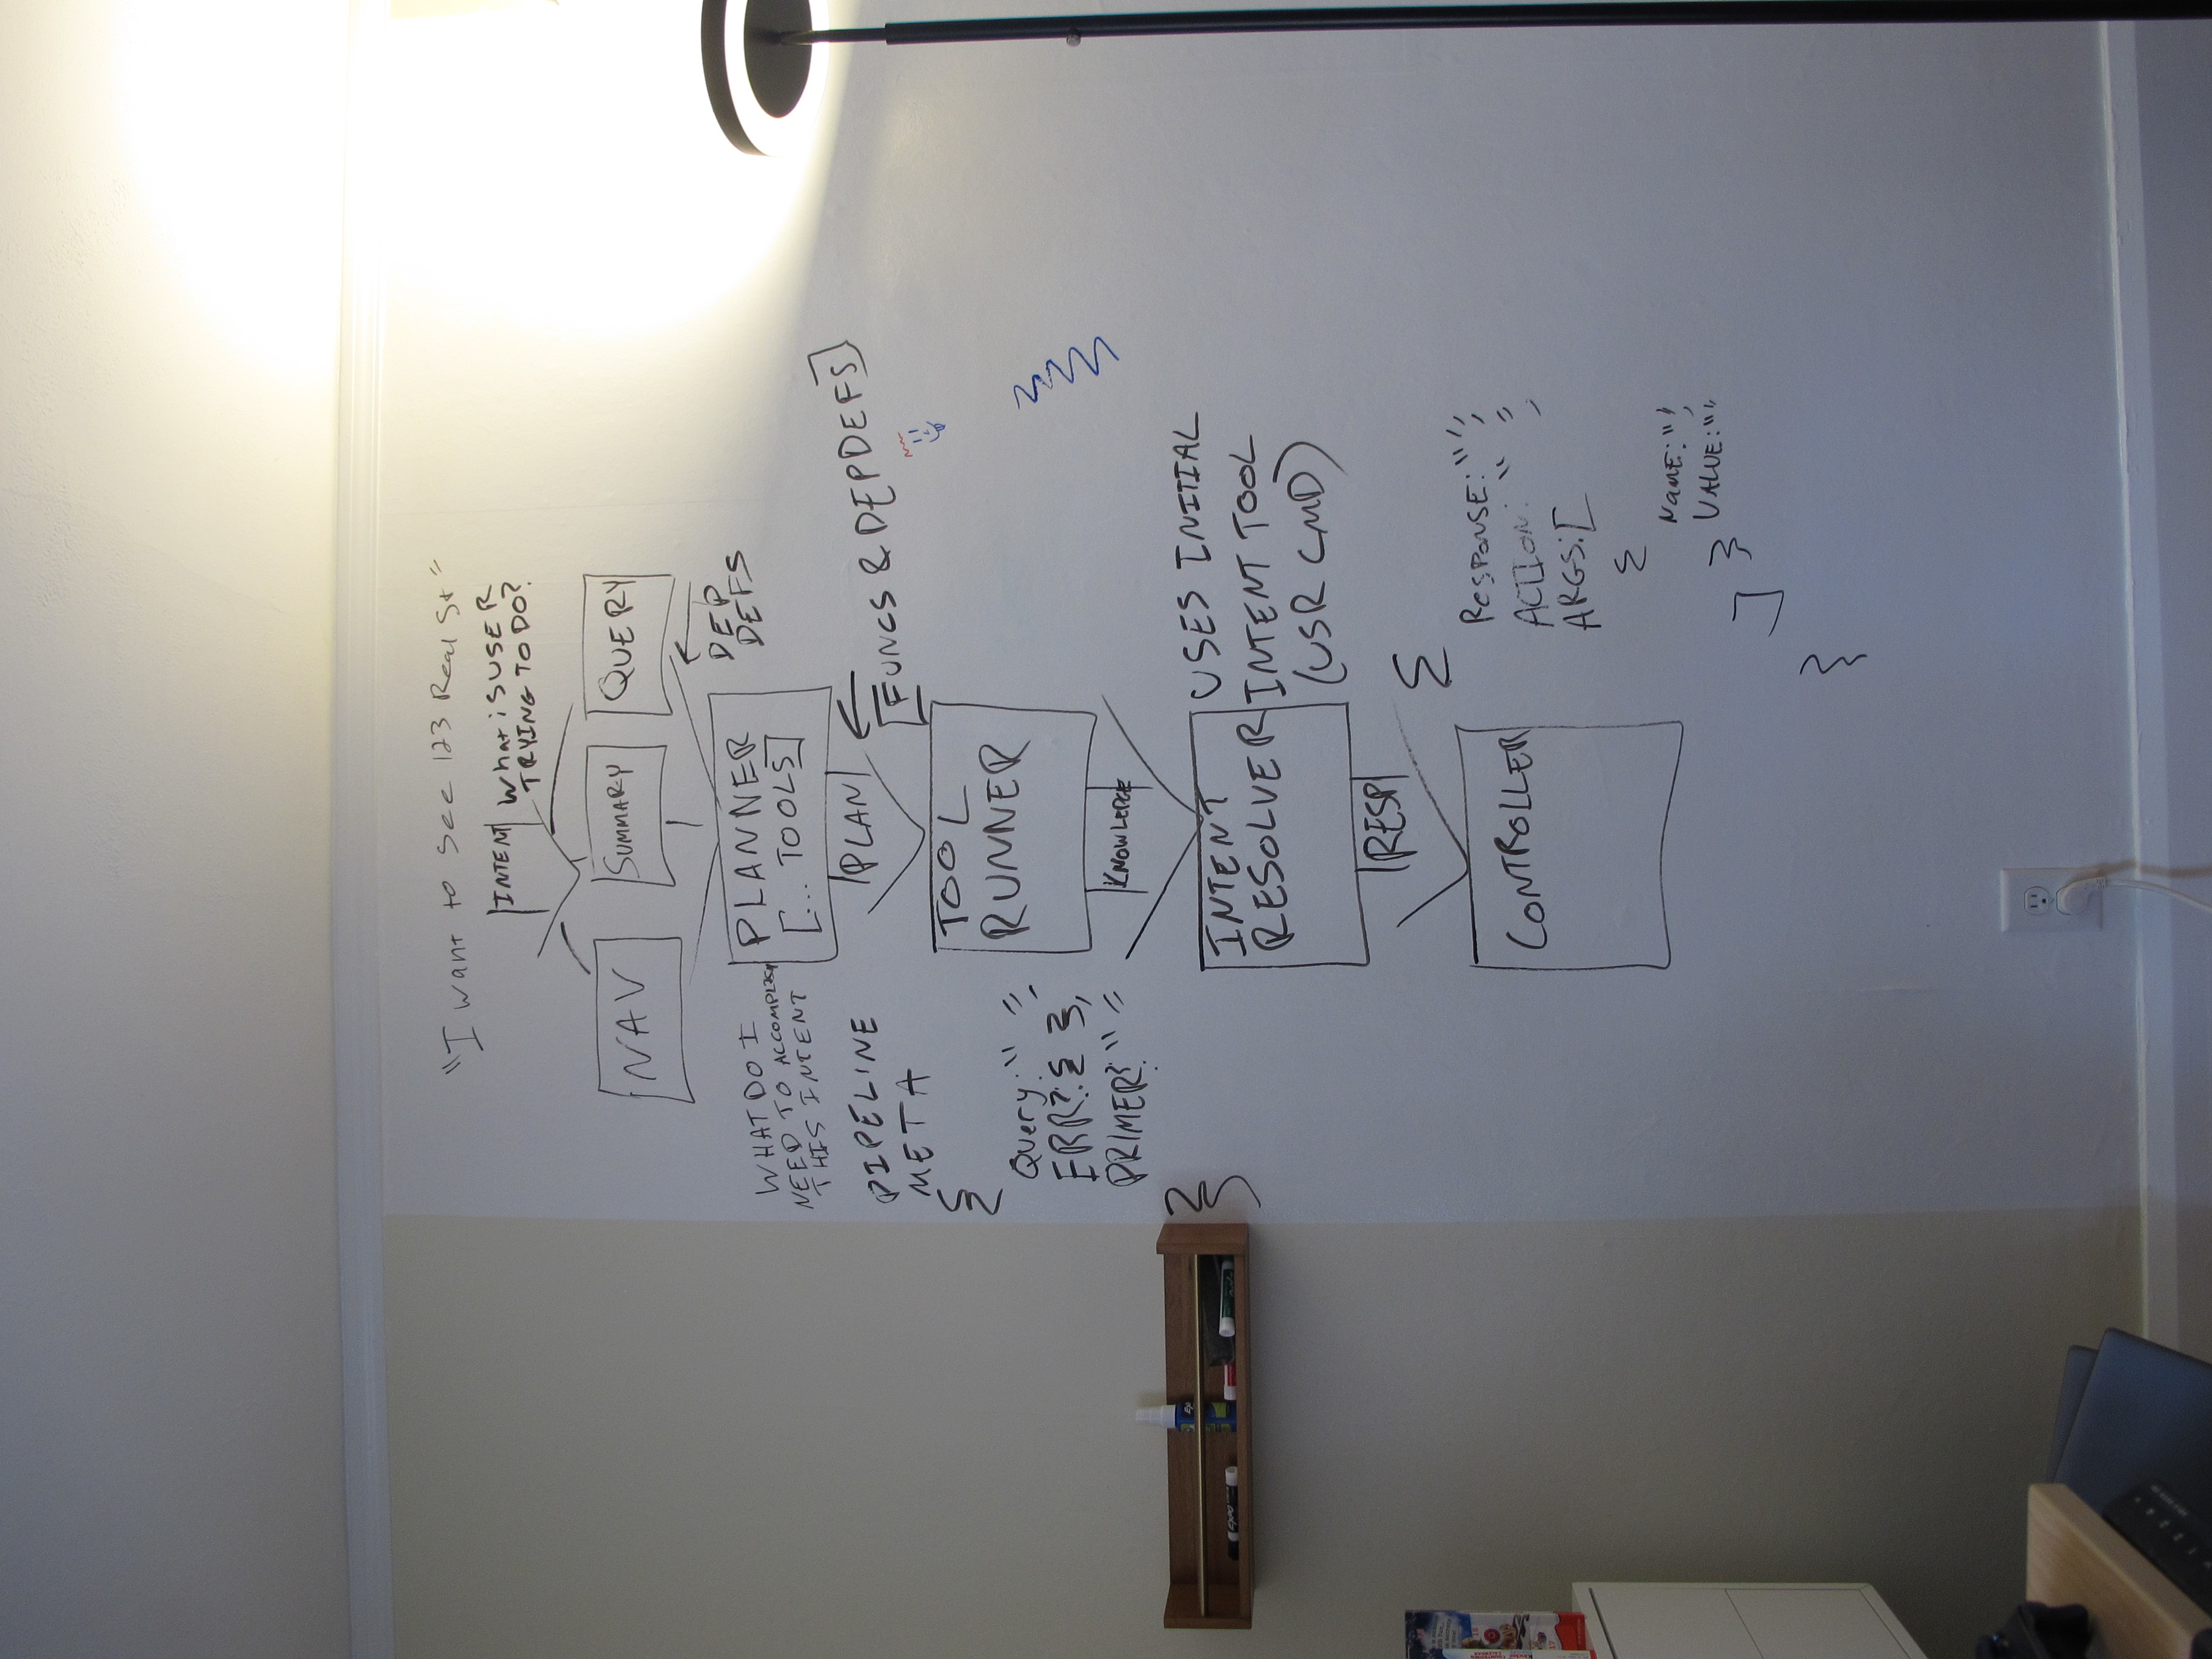 "I want to see 123 Real St"
INTENT
What is USER
TRYING TO DO?
NAV
SUMMARY
QUERY
DEP
DEFS
WHAT DO I
NEED TO ACCOMPLISH
THIS INTENT
PLANNER
[... TOOLS]
PLAN
[FUNCS & DEPDEFS]
PIPELINE
META
{
Query: "",
ERR?: {},
PRIMER?: ""
}
TOOL
RUNNER
KNOWLEDGE
INTENT
RESOLVER
USES INITIAL
INTENT TOOL
(USR CMD)
RESP
CONTROLLER
{
RESPONSE: "",
ACTION: "",
ARGS: [
{
NAME: "",
VALUE: "",
}
]
}